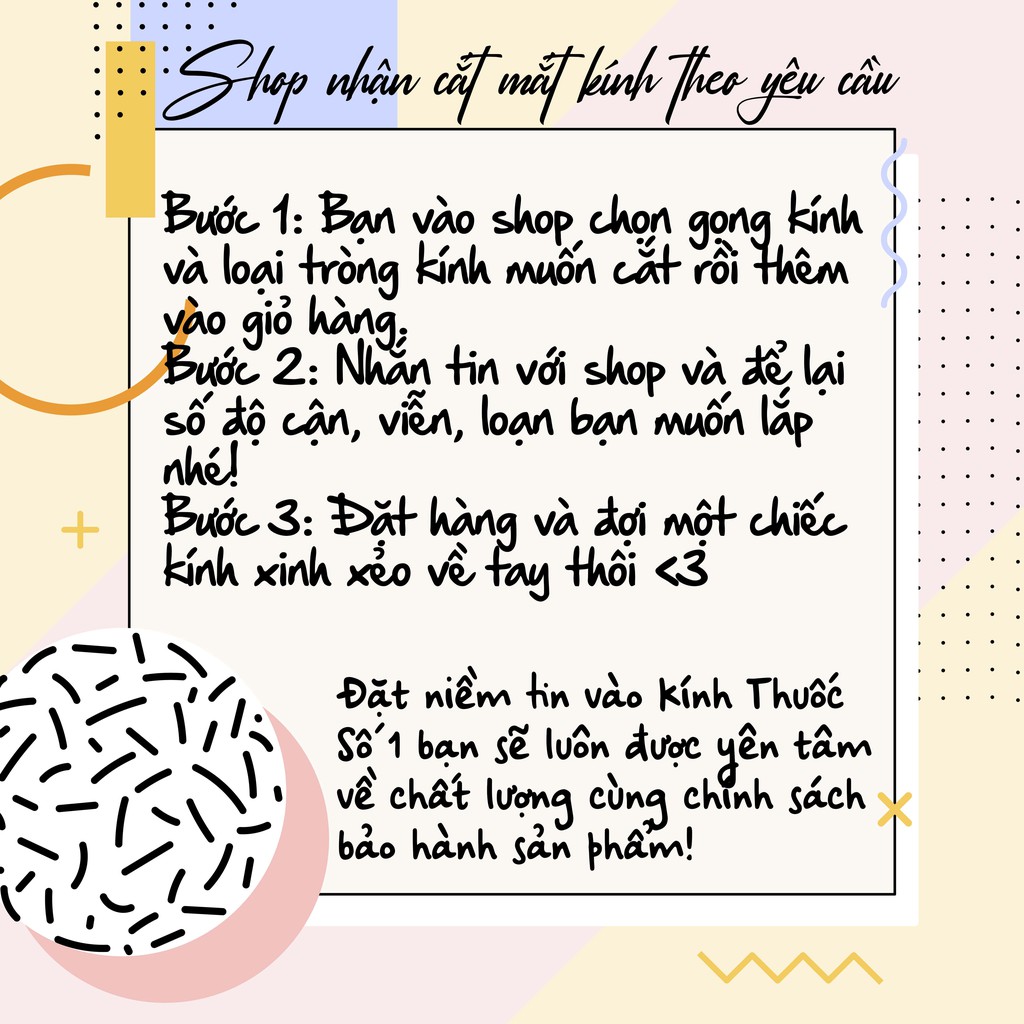 Shop nhận cắt mắt kính theo yêu cầu
Bước 1: Bạn vào shop chọn gọng kính
và loại tròng kính muốn cắt rồi thêm
vào giỏ hàng.
Bước 2: Nhắn tin với shop và để lại
số độ cận, viễn, loạn bạn muốn lắp
nhé!
Bước 3: Đặt hàng và đợi một chiếc
kính xinh xẻo về tay thôi <3
Đặt niềm tin vào Kính Thuốc
Số 1 bạn sẽ luôn được yên tâm
về chất lượng cùng chính sách
bảo hành sản phẩm!